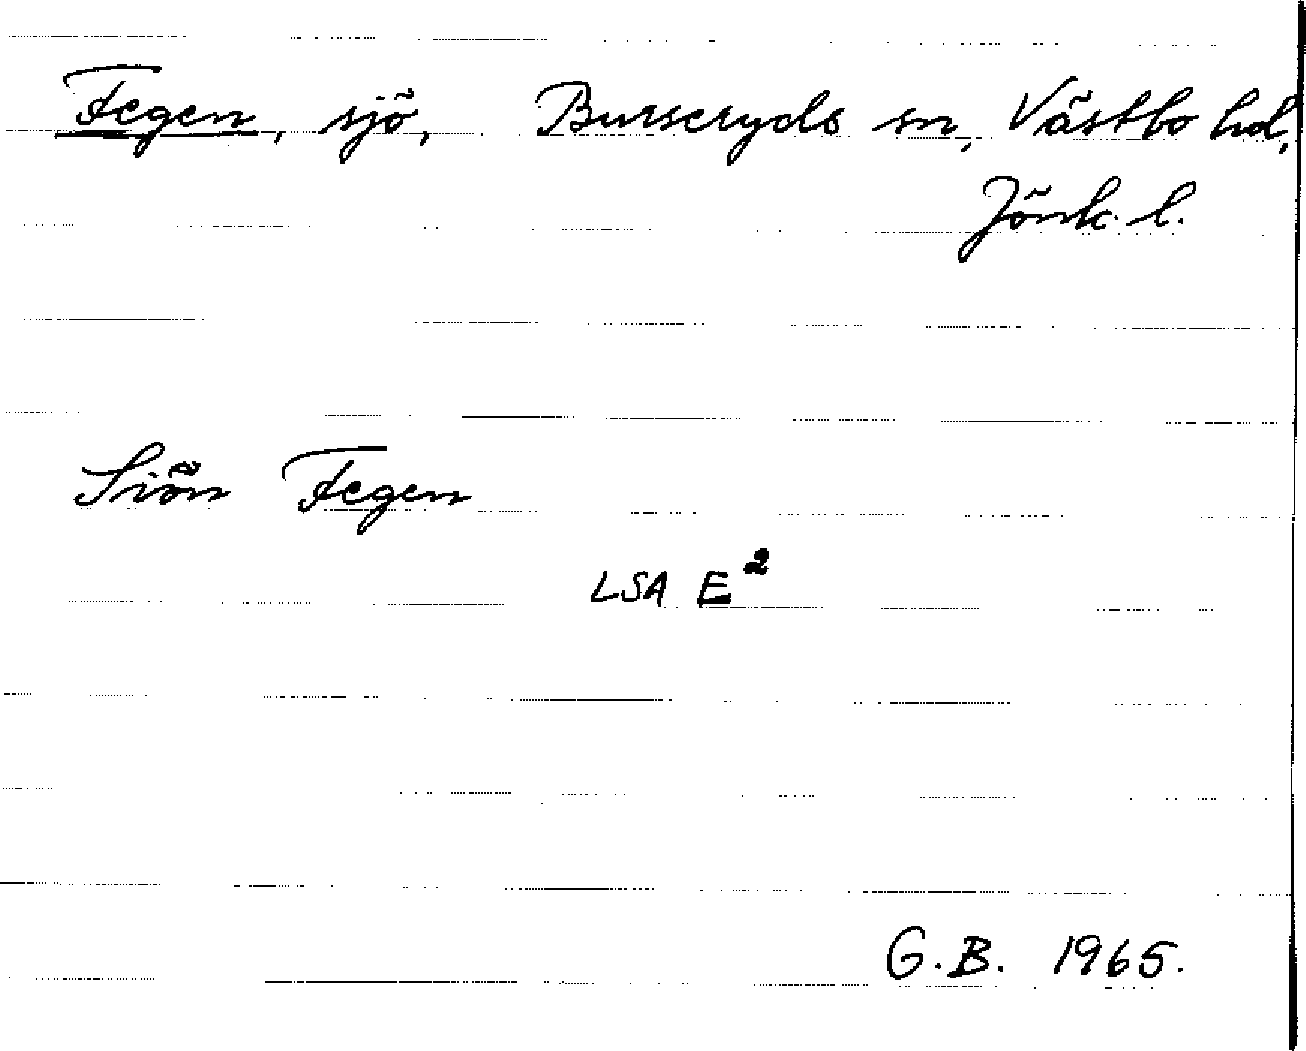 Fegen, sjö, Burseryds sn, Västbo hd,
Jönk. l.
Siön Fegen
LSA E²
G.B. 1965.